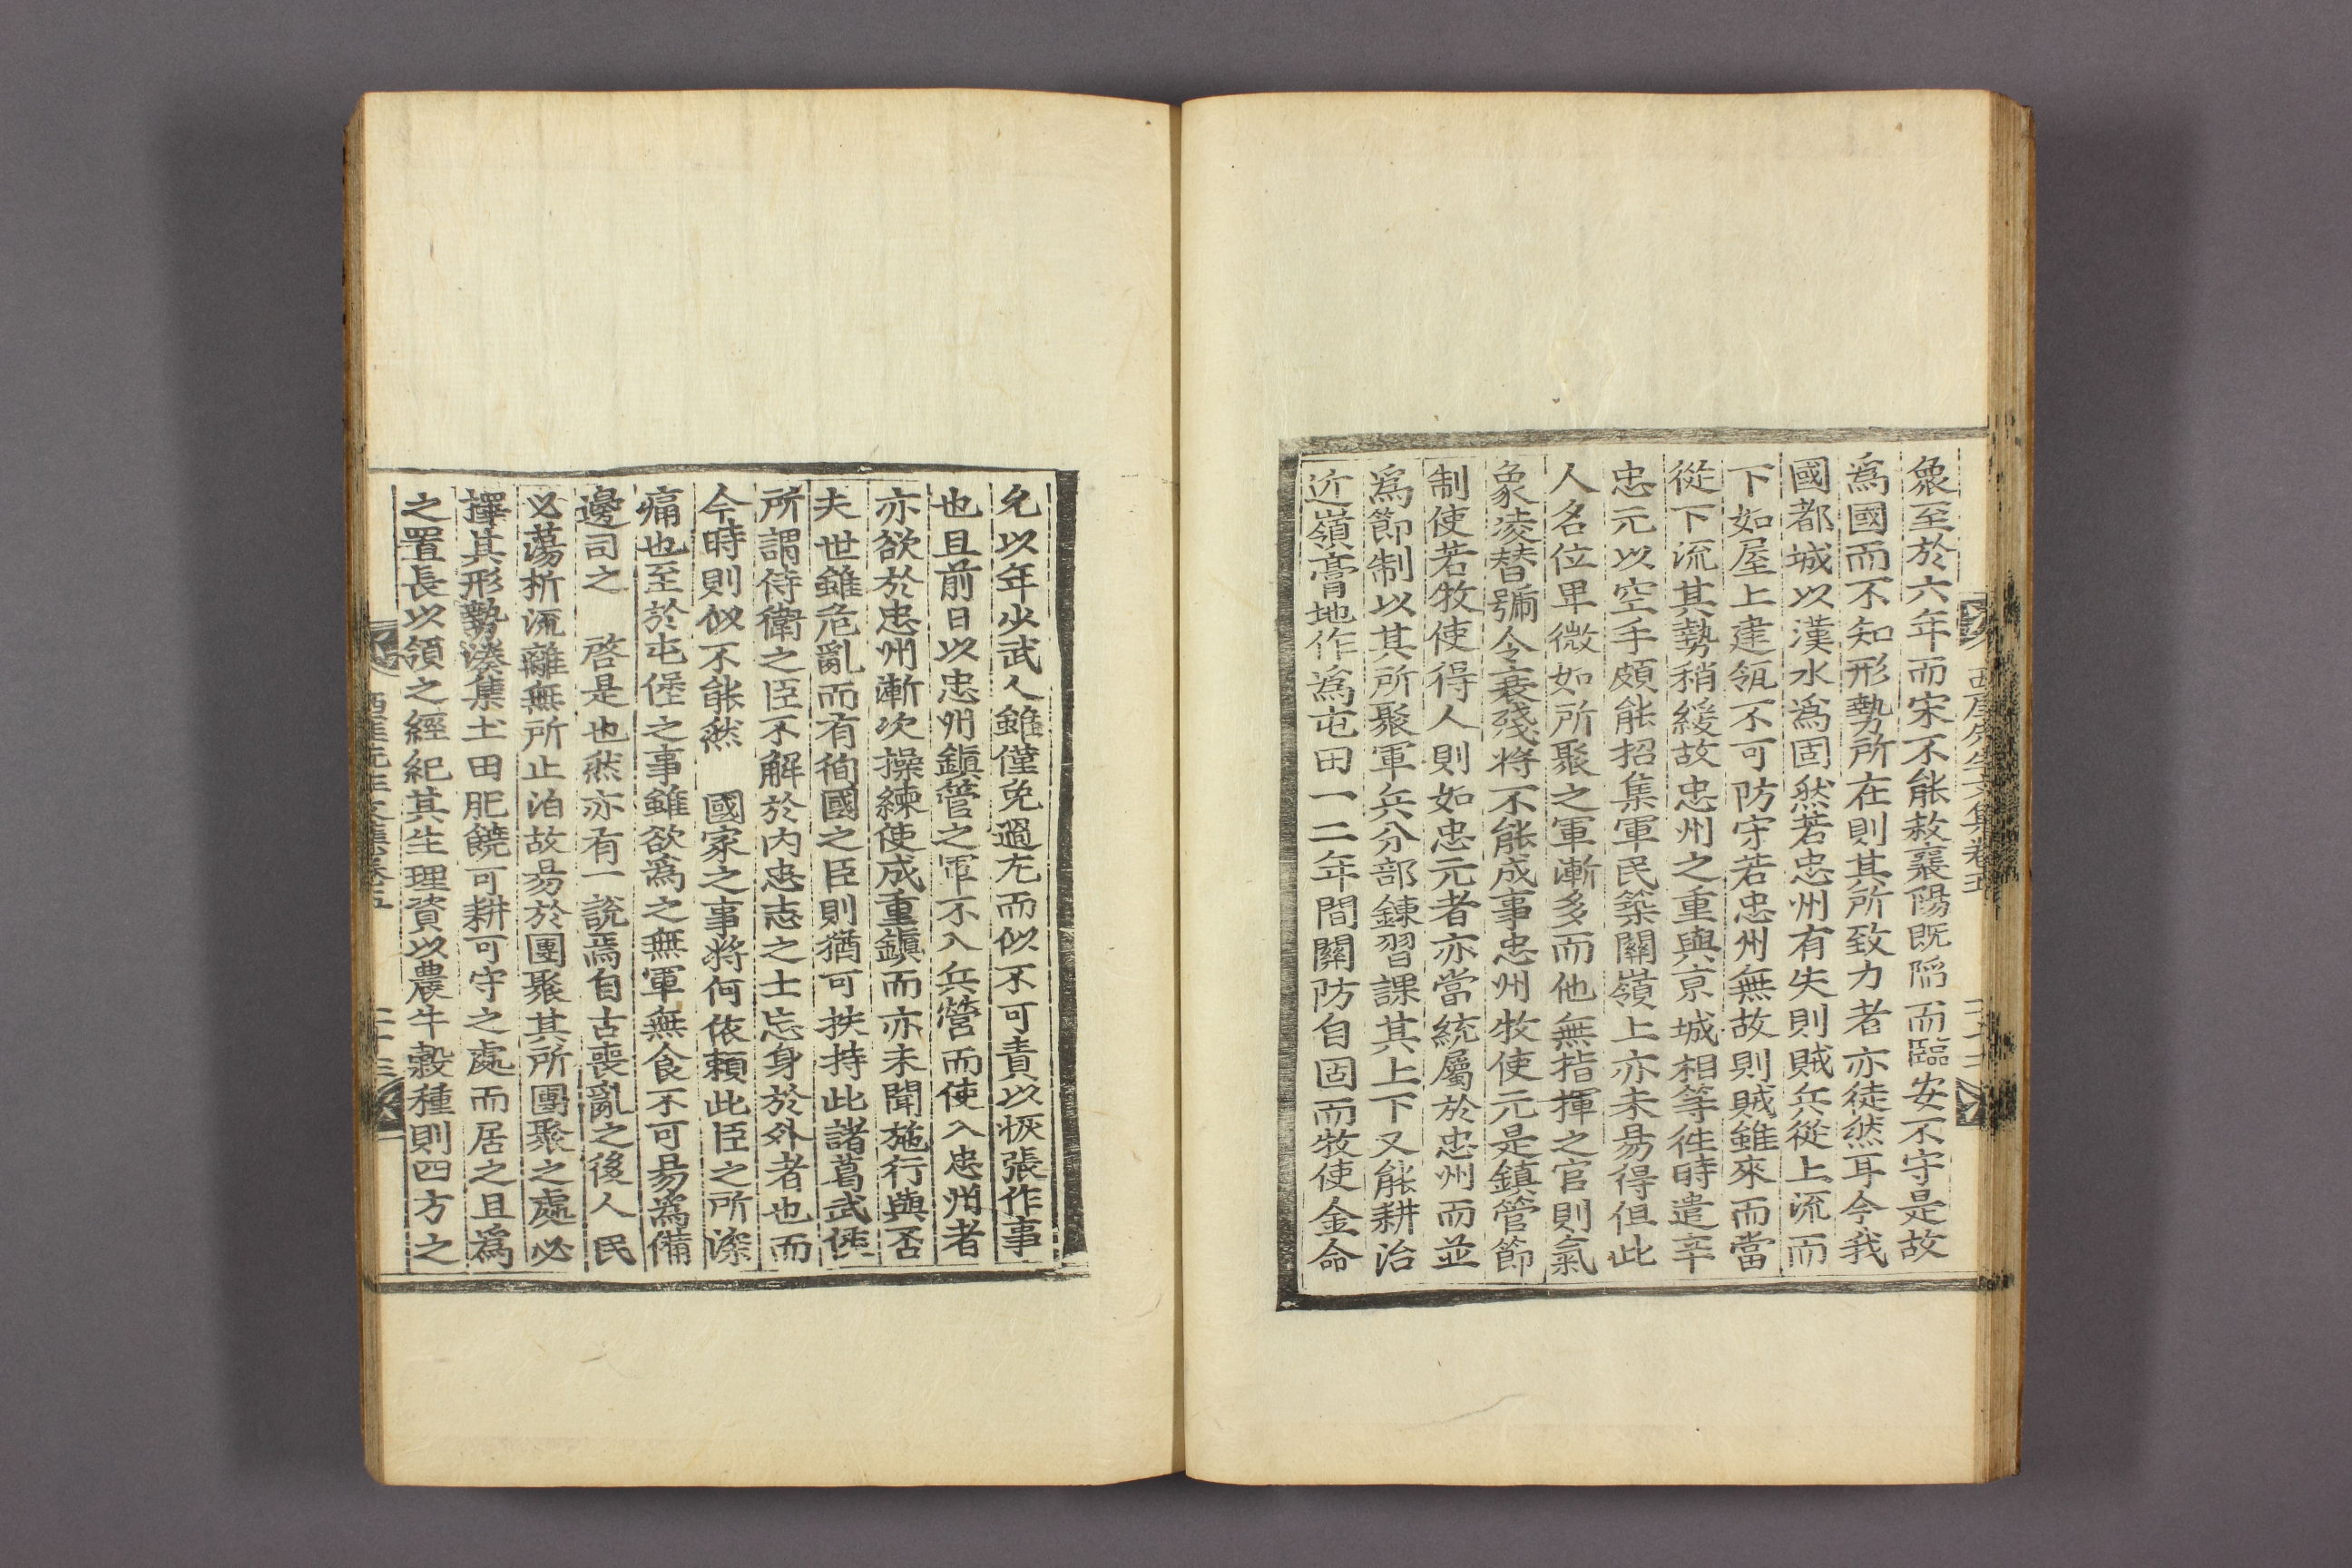 衆至於六年而宋不能救襄陽旣陷而臨安不守是故
爲國而不知形勢所在則其所致力者亦徒然耳今我
國都城以漢水爲固然若忠州有失則賊兵從上流而
下如屋上建瓴不可防守若忠州無故則賊雖來而當
從下流其勢稍緩故忠州之重與京城相等徃時遣辛
忠元以空手頗能招集軍民築關嶺上亦未易得但此
人名位卑微如所聚之軍漸多而他無指揮之官則氣
象凌替號令衰殘將不能成事忠州牧使元是鎭管節
制使若牧使得人則如忠元者亦當統屬於忠州而並
爲節制以其所聚軍兵分部鍊習課其上下又能耕治
近嶺膏地作爲屯田一二年間關防自固而牧使金命
西厓先生文集卷五
允以年少武人雖僅免過尤而似不可責以恢張作事
也且前日以忠州鎭管之軍不入兵營而使入忠州者
亦欲於忠州漸次操練使成重鎭而亦未聞施行與否
夫世雖危亂而有徇國之臣則猶可扶持此諸葛武侯
所謂侍衛之臣不解於內忠志之士忘身於外者也而
今時則似不能然 國家之事將何依賴此臣之所深
痛也至於屯堡之事雖欲爲之無軍無食不可易爲備
邊司之 啓是也然亦有一說焉自古喪亂之後人民
必蕩析流離無所止泊故易於團聚其所團聚之處必
擇其形勢湊集土田肥饒可耕可守之處而居之且爲
之置長以領之經紀其生理資以農牛穀種則四方之
西厓先生文集卷五 二十三